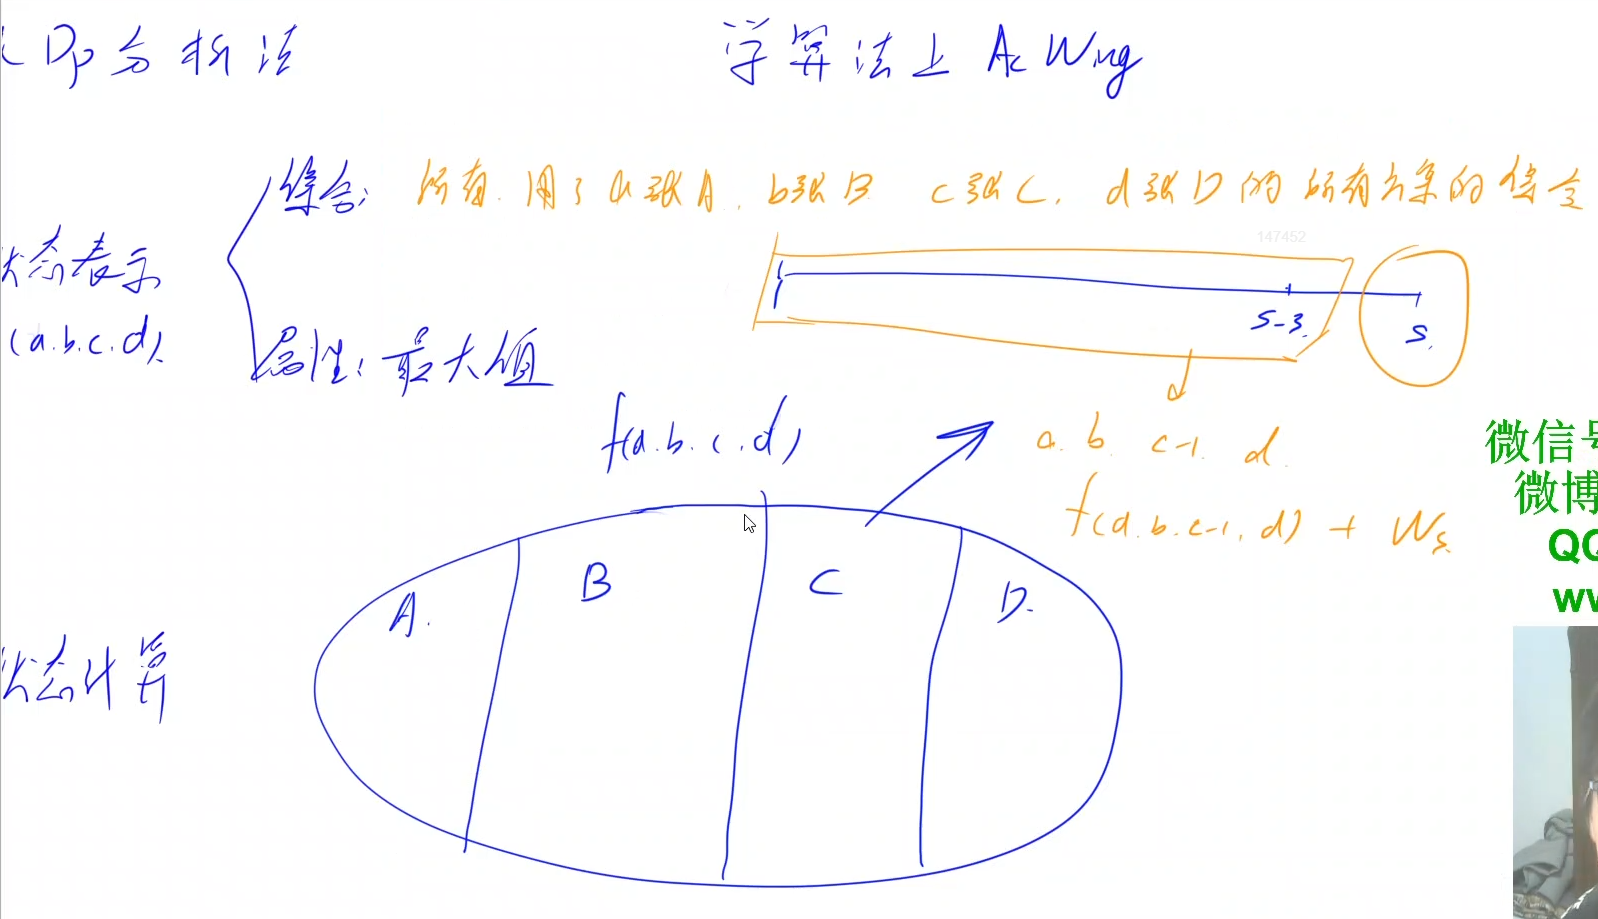 Dp分析法
学算法上AcWing
集合: 所有用了a张A, b张B c张C, d张D的所有方案的集合
147452
状态表示
(a.b.c.d).
S-3.
S.
属性: 最大值
f(a.b.c.d)
a. b. c-1. d.
f(a.b.c-1.d) + Ws.
微信号
微博
QQ
A. B C D.
状态计算